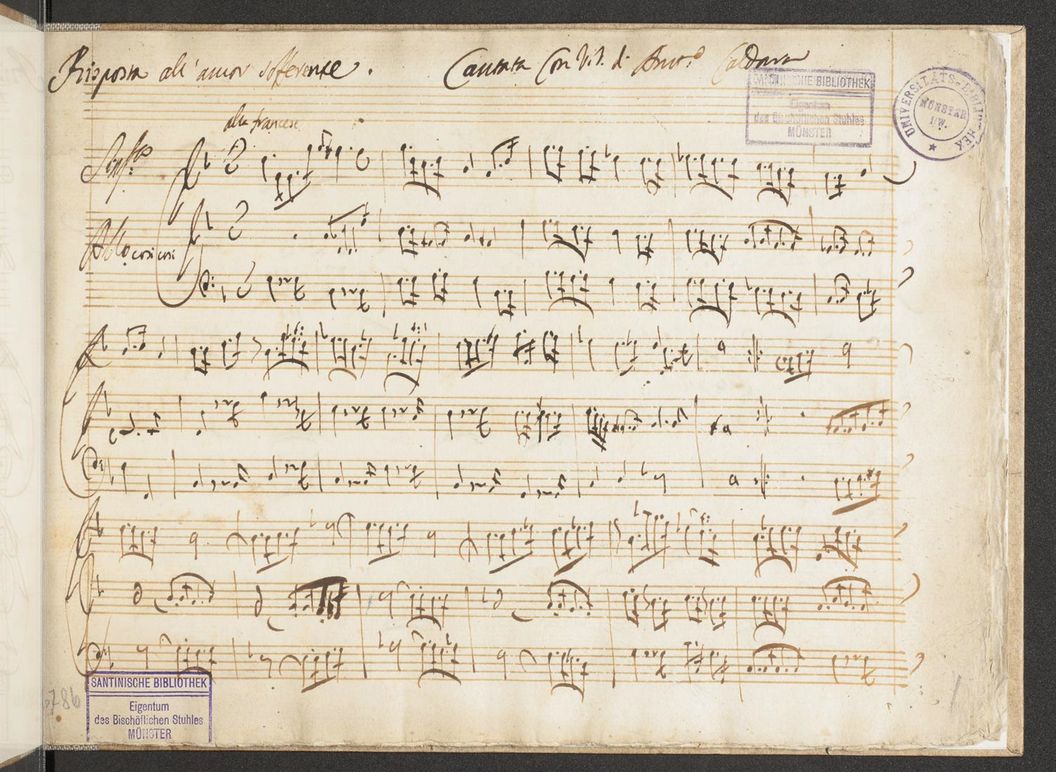 Risposta all' amor sofferente. Cantata Con V.V. di Ant.o Caldara
SANTINISCHE BIBLIOTHEK
Eigentum
des Bischöflichen Stuhles
MÜNSTER
UNIVERSITÄTS-BIBLIOTHEK
MÜNSTER
i/W.
alla francese
SANTINISCHE BIBLIOTHEK
Eigentum
des Bischöflichen Stuhles
MÜNSTER